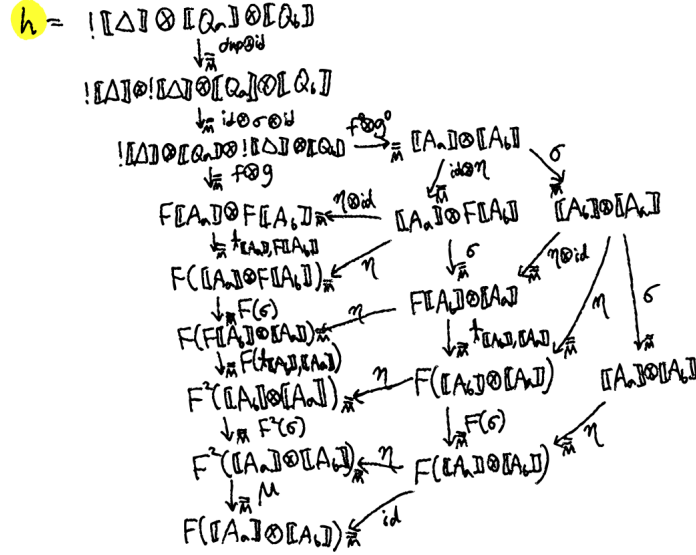 h = !⟦Δ⟧ ⊗ ⟦Qₐ⟧ ⊗ ⟦Q_b⟧
↓_M̿ dup⊗id
!⟦Δ⟧⊗!⟦Δ⟧⊗⟦Qₐ⟧⊗⟦Q_b⟧
↓_M̿ id⊗σ⊗id
!⟦Δ⟧⊗⟦Qₐ⟧⊗!⟦Δ⟧⊗⟦Q_b⟧ f⁰⊗g⁰ →_M̿ ⟦Aₐ⟧⊗⟦A_b⟧
↓_M̿ f⊗g id⊗η ↙_M̿ σ ↘_M̿
F⟦Aₐ⟧⊗F⟦A_b⟧ _M̿← η⊗id ⟦Aₐ⟧⊗F⟦A_b⟧ ⟦A_b⟧⊗⟦Aₐ⟧
↓_M̿ t_⟦Aₐ⟧,F⟦A_b⟧ η ↓_M̿ σ η⊗id σ
F(⟦Aₐ⟧⊗F⟦A_b⟧)_M̿
↓_M̿ F(σ) η F⟦A_b⟧⊗⟦Aₐ⟧ η
F(F⟦A_b⟧⊗⟦Aₐ⟧)_M̿
↓_M̿ F(t_⟦A_b⟧,⟦Aₐ⟧) ↓_M̿ t_⟦A_b⟧,⟦Aₐ⟧
F²(⟦A_b⟧⊗⟦Aₐ⟧)_M̿ ← η F(⟦A_b⟧⊗⟦Aₐ⟧) ⟦Aₐ⟧⊗⟦A_b⟧
↓_M̿ F²(σ) ↓_M̿ F(σ) η
F²(⟦Aₐ⟧⊗⟦A_b⟧)_M̿ ← η F(⟦Aₐ⟧⊗⟦A_b⟧)
↓_M̿ μ id
F(⟦Aₐ⟧⊗⟦A_b⟧)_M̿